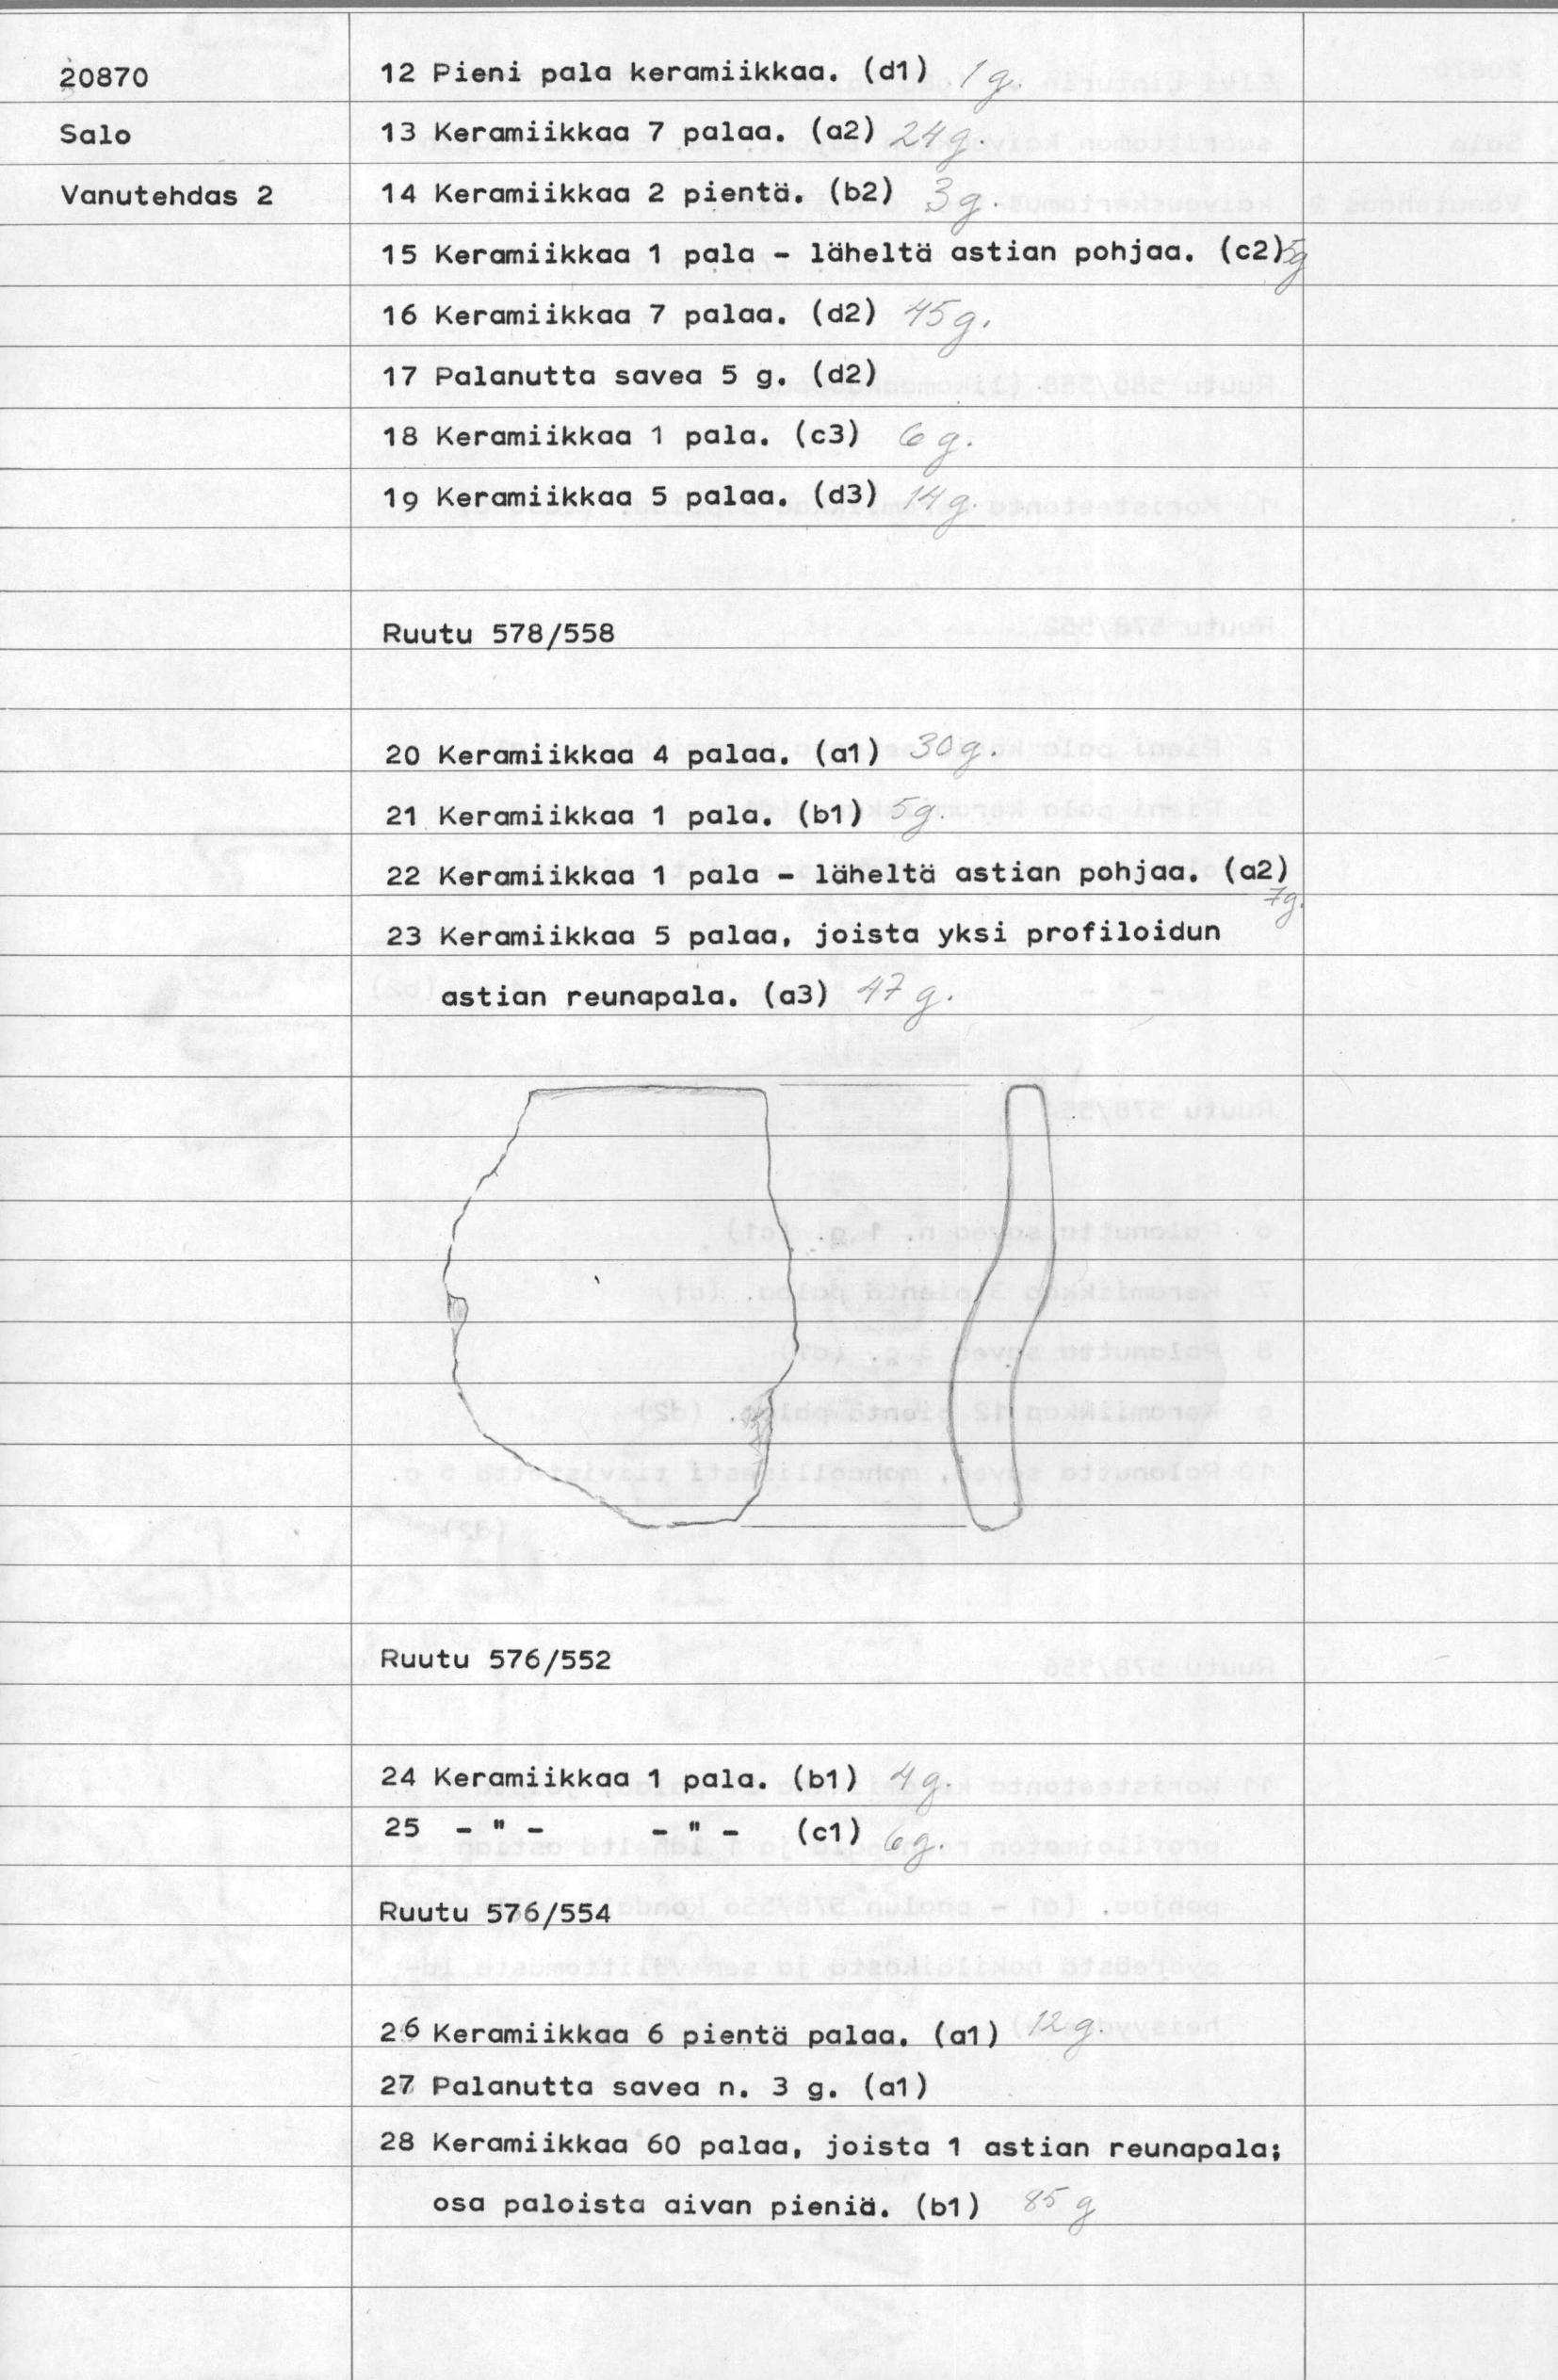 20870
12 Pieni pala keramiikkaa. (d1) 1 g.
Salo
13 Keramiikkaa 7 palaa. (a2) 24 g.
Vanutehdas 2
14 Keramiikkaa 2 pientä. (b2) 3 g.
15 Keramiikkaa 1 pala - läheltä astian pohjaa. (c2) 5g
16 Keramiikkaa 7 palaa. (d2) 45 g.
17 Palanutta savea 5 g. (d2)
18 Keramiikkaa 1 pala. (c3) 6 g.
19 Keramiikkaa 5 palaa. (d3) 14 g.
Ruutu 578/558
20 Keramiikkaa 4 palaa. (a1) 30 g.
21 Keramiikkaa 1 pala. (b1) 5 g.
22 Keramiikkaa 1 pala - läheltä astian pohjaa. (a2)
7 g.
23 Keramiikkaa 5 palaa, joista yksi profiloidun
astian reunapala. (a3) 47 g.
Ruutu 576/552
24 Keramiikkaa 1 pala. (b1) 4 g.
25 - " - - " - (c1) 6 g.
Ruutu 576/554
26 Keramiikkaa 6 pientä palaa. (a1) 12 g.
27 Palanutta savea n. 3 g. (a1)
28 Keramiikkaa 60 palaa, joista 1 astian reunapala;
osa paloista aivan pieniä. (b1) 85 g